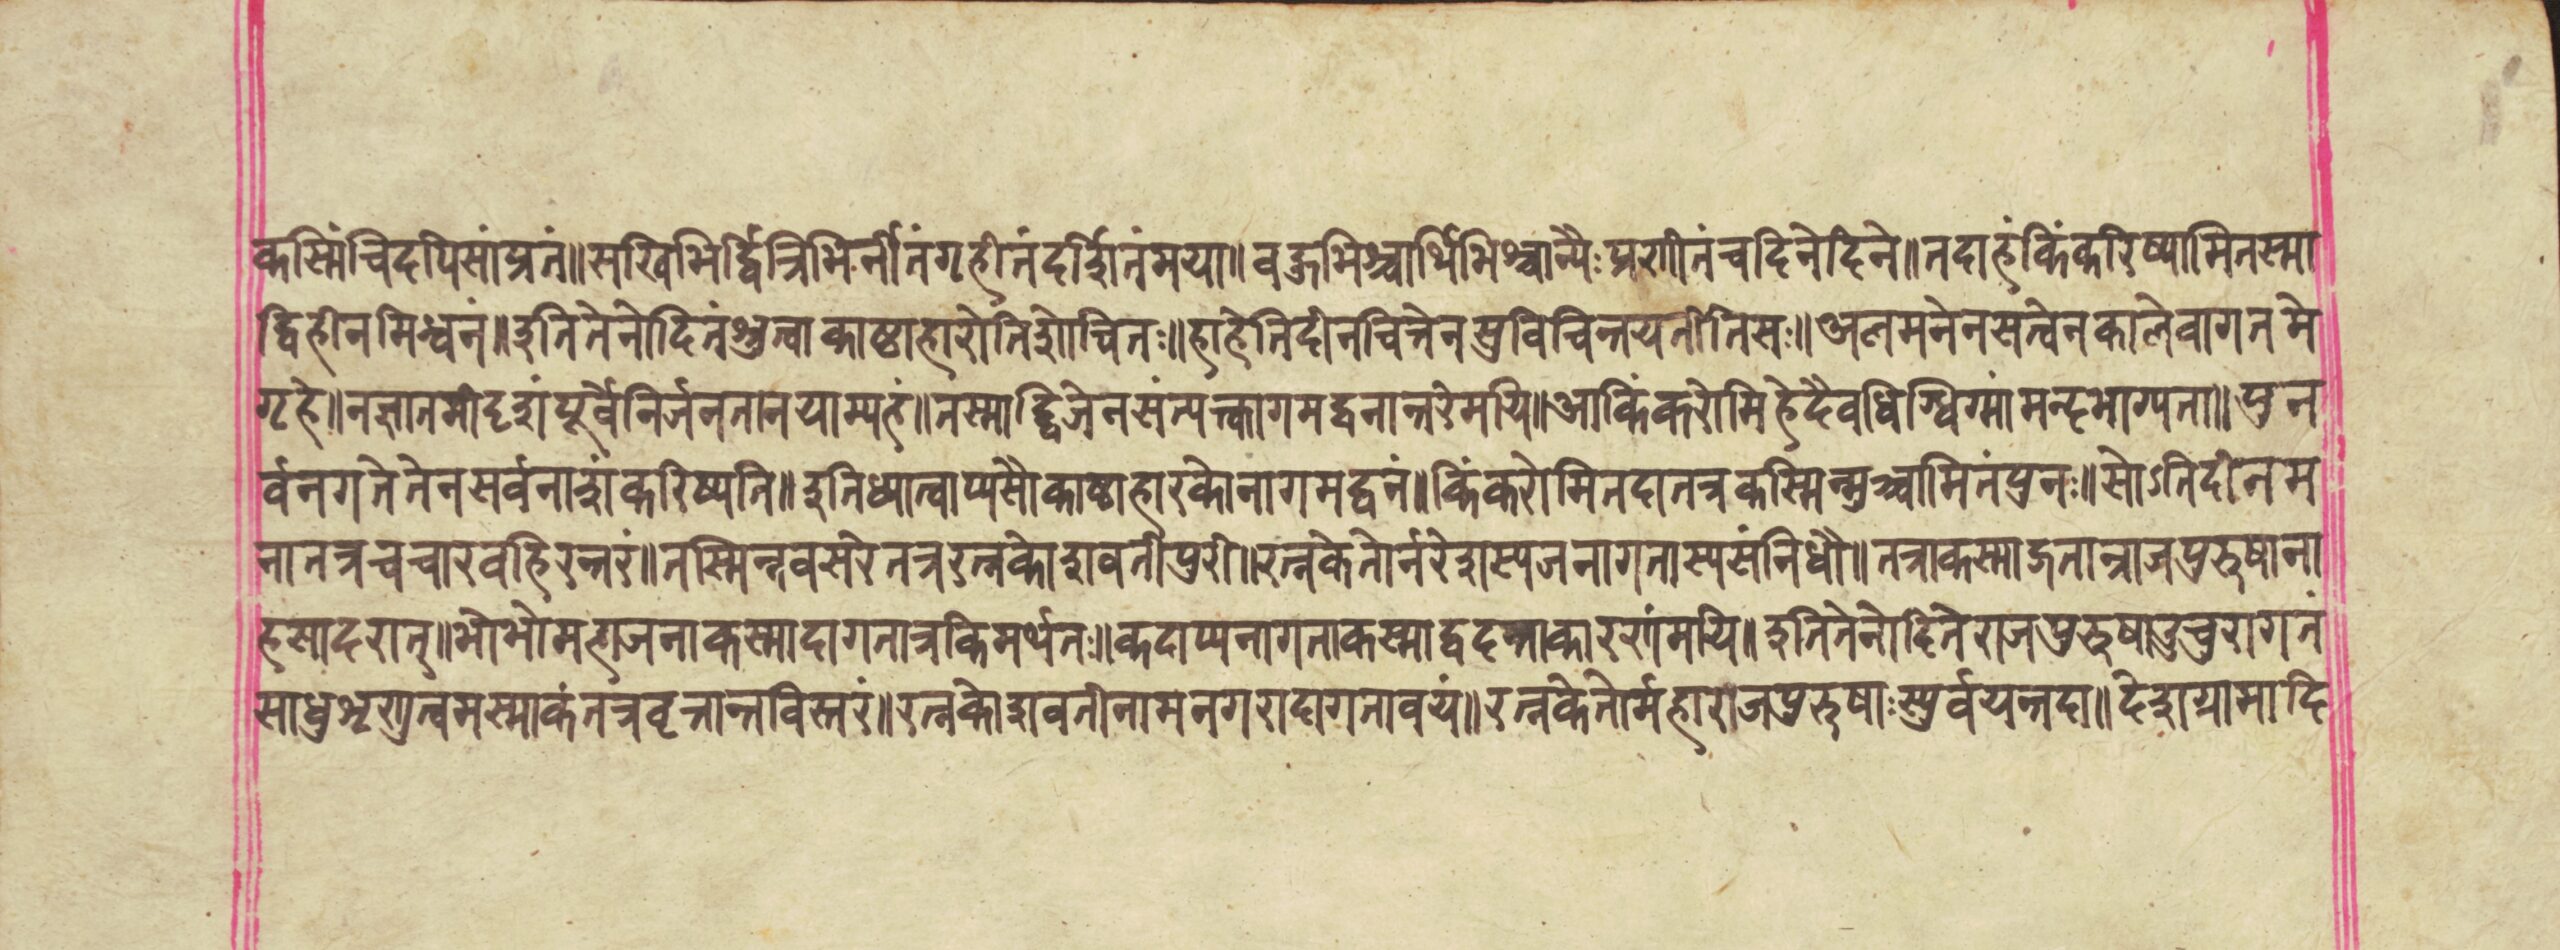 कस्मिंचिदपिसांप्रतं॥सखिभिर्द्वित्रिभिर्नीतंगृहीतंदर्शितंमया॥वह्रभिश्चार्थिभिश्चान्यैःप्रणीतंचदिनेदिने॥तदाहंकिंकरिष्यामितस्मा
द्विहीनमिन्धनं॥इतितेनोदितंश्रुत्वाकाष्ठाहारोतिशोचितः॥हाहेतिदीनचित्तेनसुविचिन्तयतीतिसः॥अलमनेनसत्वेनकालेवागतमे
गृहे॥नज्ञातमीदृशंपूर्वैनिर्जनतानयाम्यहं॥तस्माद्द्विजेनसंत्यक्त्वागमद्वनान्तरेमयि॥आकिंकरोमिहेदैवधिग्धिग्मांमन्दभाग्यता॥पुन
र्वनगतेतेनसर्वनाशंकरिष्यति॥इतिध्यात्वाप्यसौकाष्ठाहारकोनागमद्वनं॥किंकरोमितदातत्रकस्मिन्मुञ्चामितंपुनः॥सोऽतिदीनम
नातत्रचचारवहिरन्तरं॥तस्मिन्नवसरेतत्ररत्नकोशवतीपुरी॥रत्नकेतोर्नरेशस्यजनागतास्यसंनिधौ॥तत्राकस्माद्गतान्राजपुरुषाना
हसादरात्॥भोभोमहाजनाकस्मादागतात्रकिमर्थतः॥कदाप्यनागताकस्माद्वदन्ताकारणंमयि॥इतितेनोदितेराजपुरुषाउचुरागतं
साधुशृणुत्वमस्माकंतत्रवृत्तान्तविस्तरं॥रत्नकोशवतीनामनगरादागतावयं॥रत्नकेतोर्महाराजपुरुषाःस्पुर्वयन्तदा॥देशग्रामादि